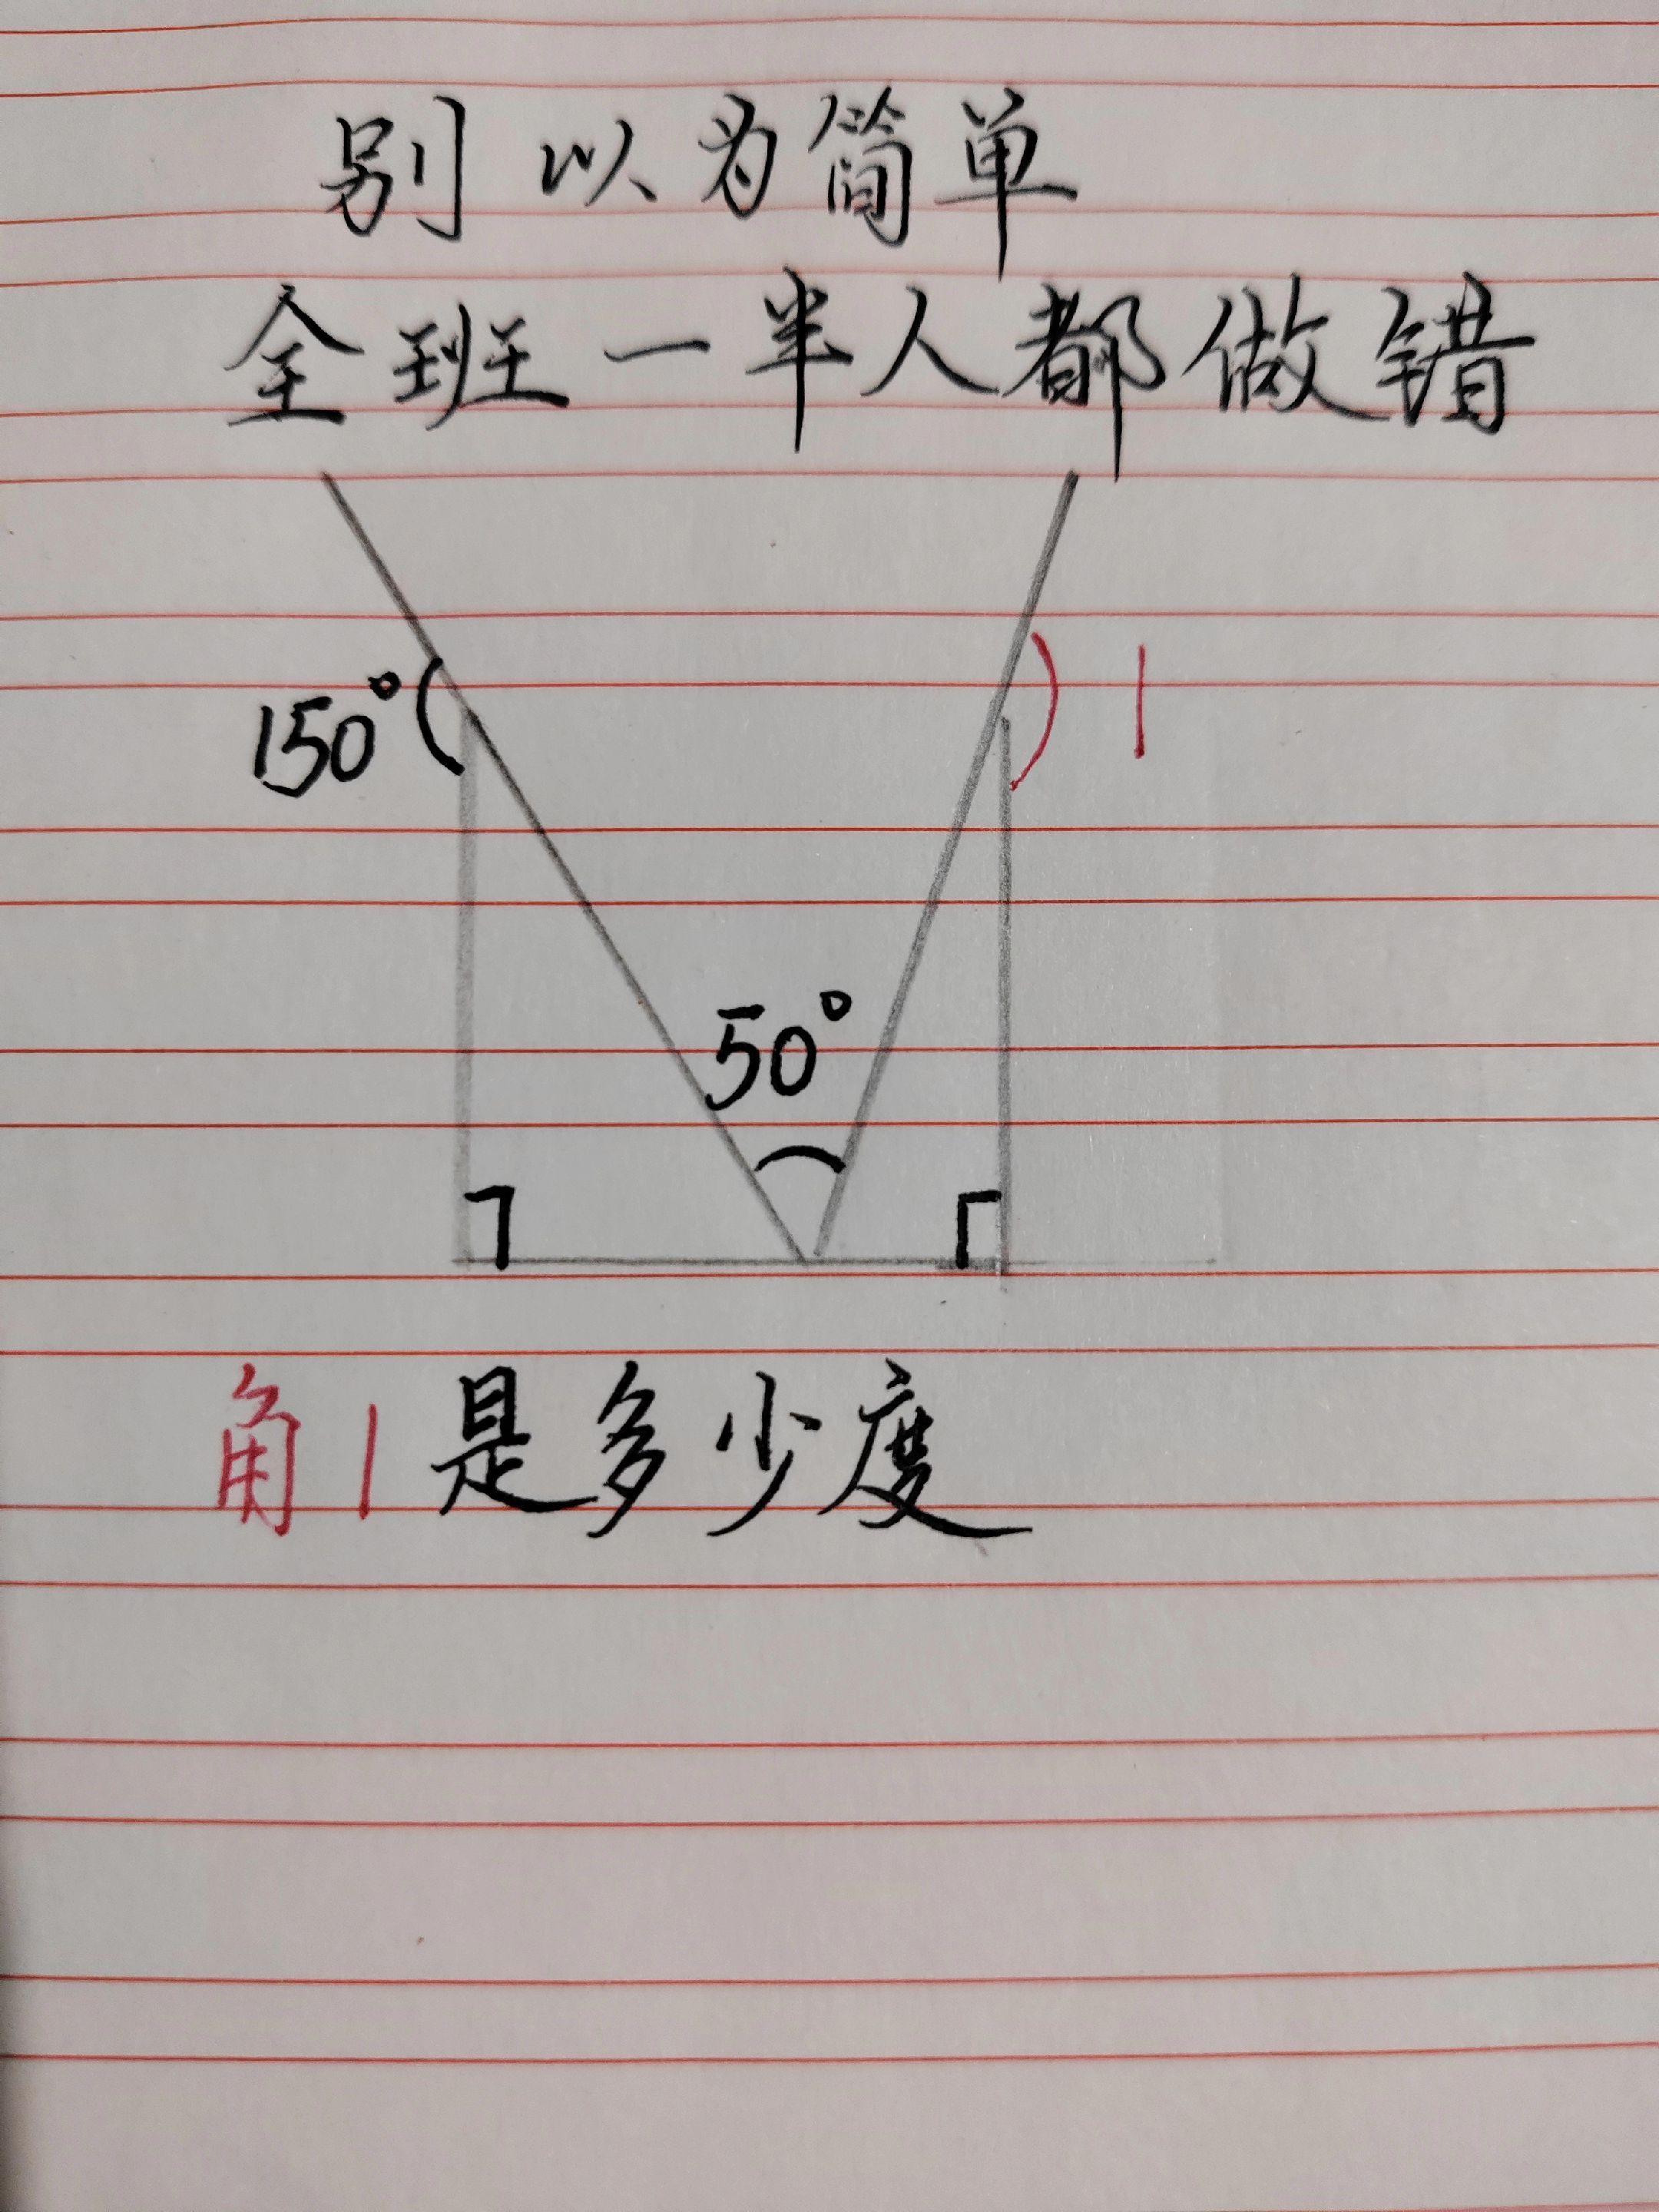 别以为简单
全班一半人都做错
150° 1
50°
角1是多少度